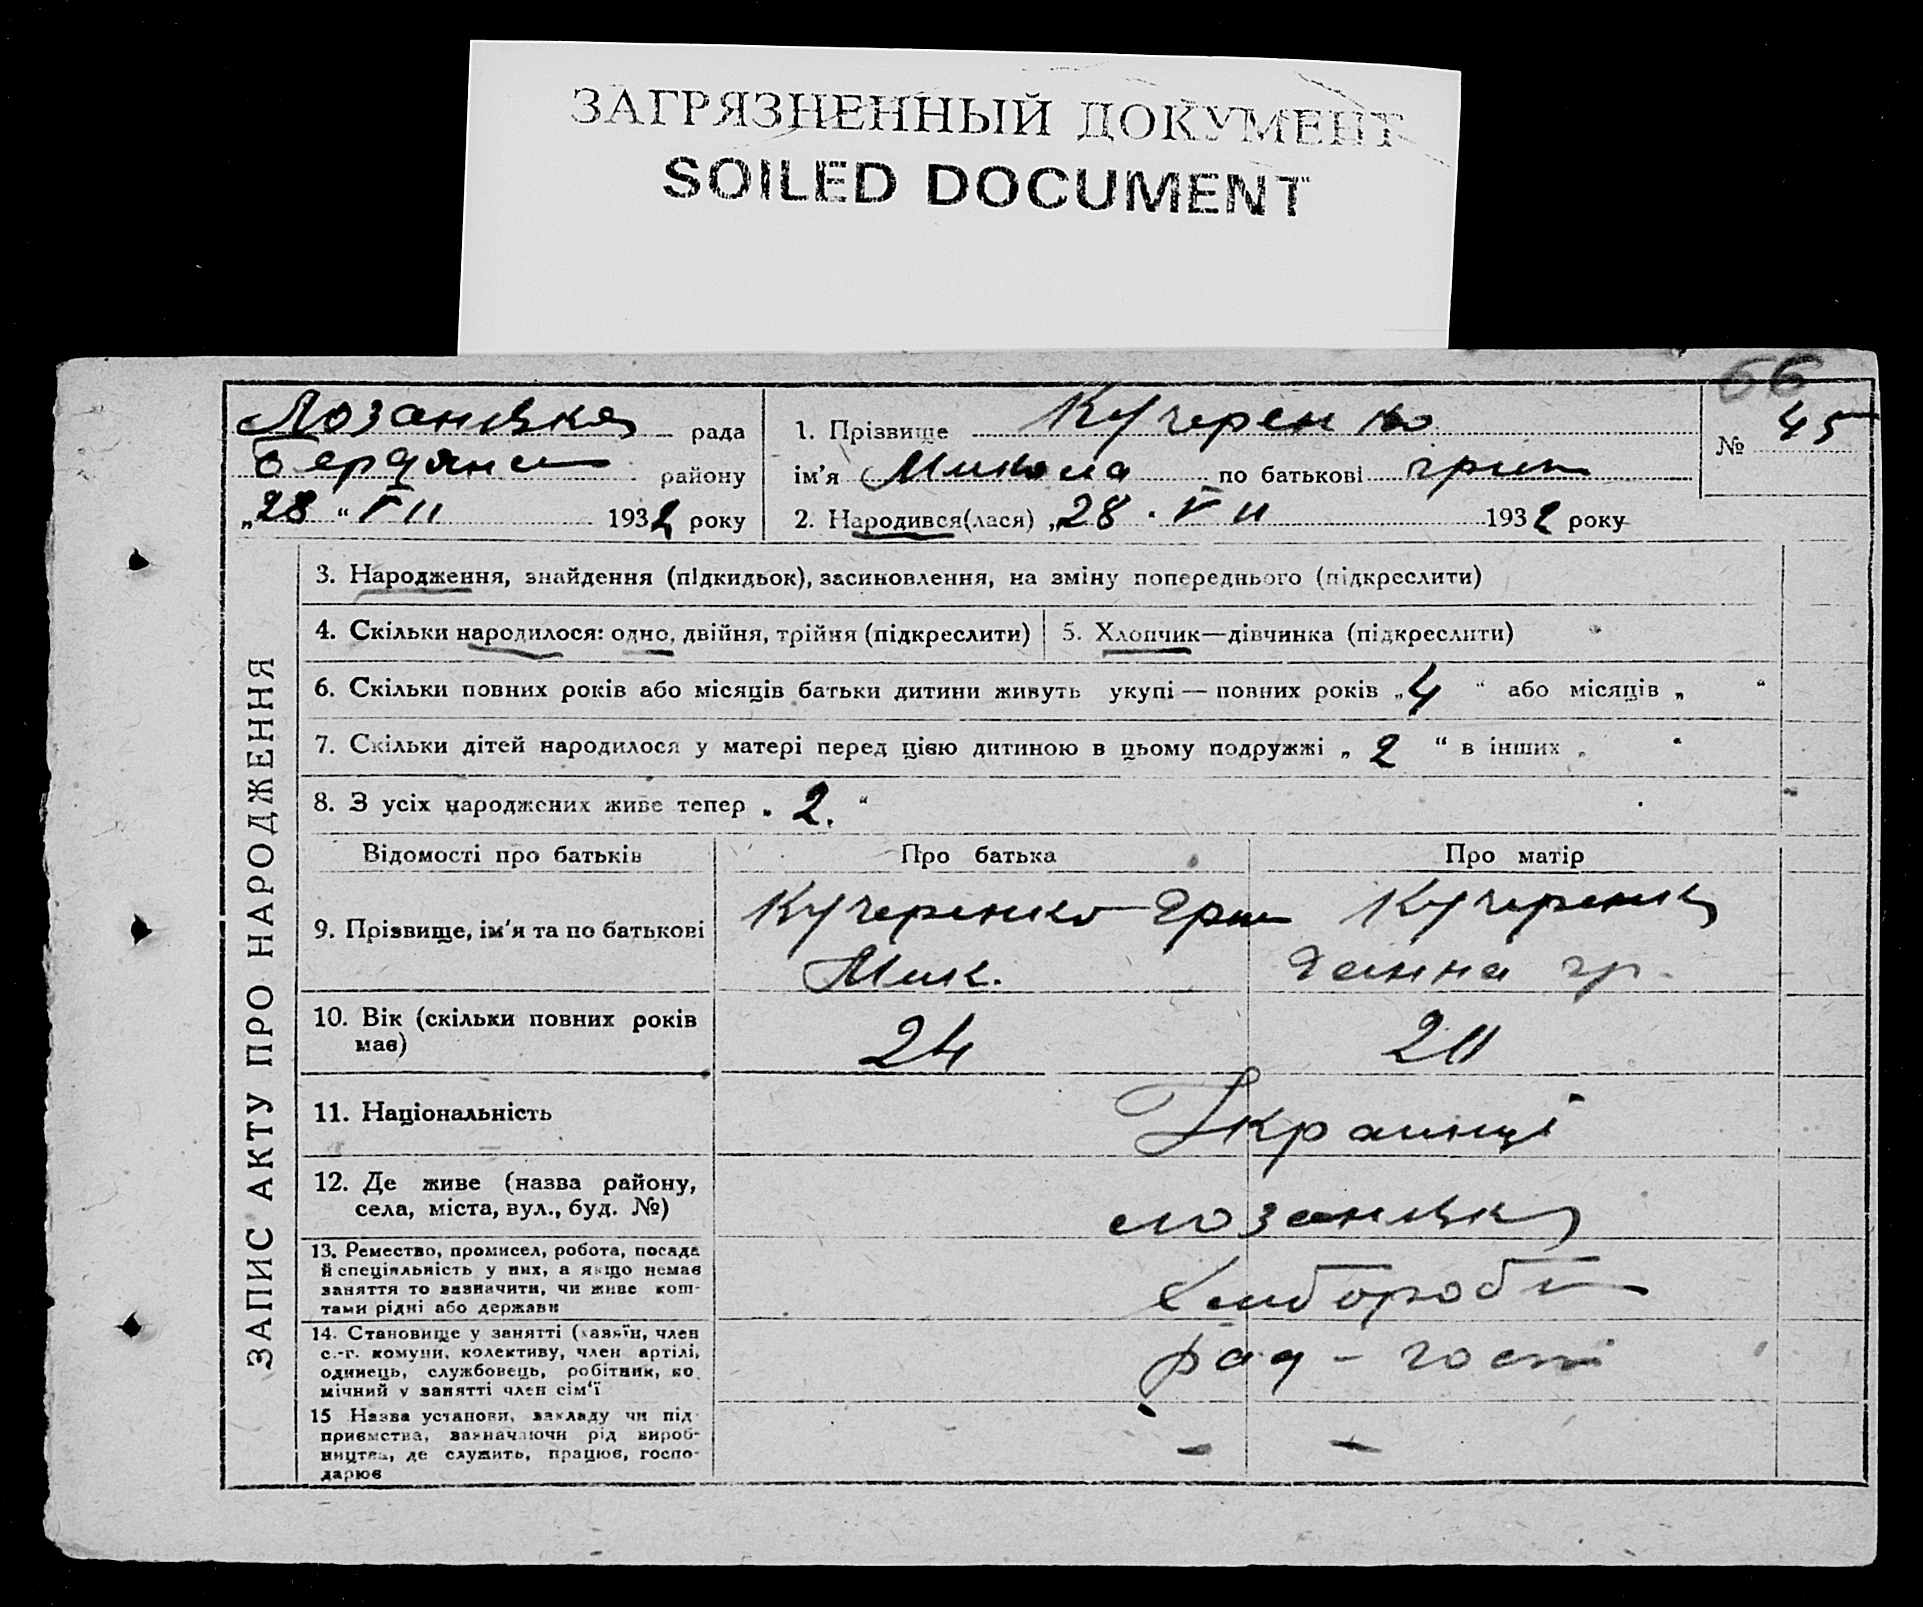 ЗАГРЯЗНЕННЫЙ ДОКУМЕНТ
SOILED DOCUMENT
66
Лозанівка рада
Бердянс району
„28“ VII 1932 року
1. Прізвище Кучеренко
ім'я Микола по батькові Григ
2. Народився(лася) „28 VII 1932 року
№ 45
ЗАПИС АКТУ ПРО НАРОДЖЕННЯ
3. Народження, знайдення (підкидьок), засиновлення, на зміну попереднього (підкреслити)
4. Скільки народилося: одно, двійня, трійня (підкреслити)
5. Хлопчик—дівчинка (підкреслити)
6. Скільки повних років або місяців батьки дитини живуть укупі — повних років „4“ або місяців „ “
7. Скільки дітей народилося у матері перед цією дитиною в цьому подружжі „2“ в інших „ “
8. З усіх народжених живе тепер „2.“
Відомості про батьків
Про батька
Про матір
9. Прізвище, ім'я та по батькові
Кучеренко Гри
Мик.
Кучеренко
Ганна гр.
10. Вік (скільки повних років
має)
24
20
11. Національність
Українці
12. Де живе (назва району,
села, міста, вул., буд. №)
Лозанівка
13. Ремество, промисел, робота, посада
й спеціяльність у них, а якщо немає
заняття то зазначити, чи живе кош-
тами рідні або держави
Хлібороби
14. Становище у занятті (хазяїн, член
с.-г. комуни, колективу, член артілі,
одинець, службовець, робітник, по
мічний у занятті член сім'ї
рад-госпі
15 Назва установи, закладу чи під-
приємства, зазначаючи рід вироб-
ництва, де служить, працює, госпо-
дарює
– –